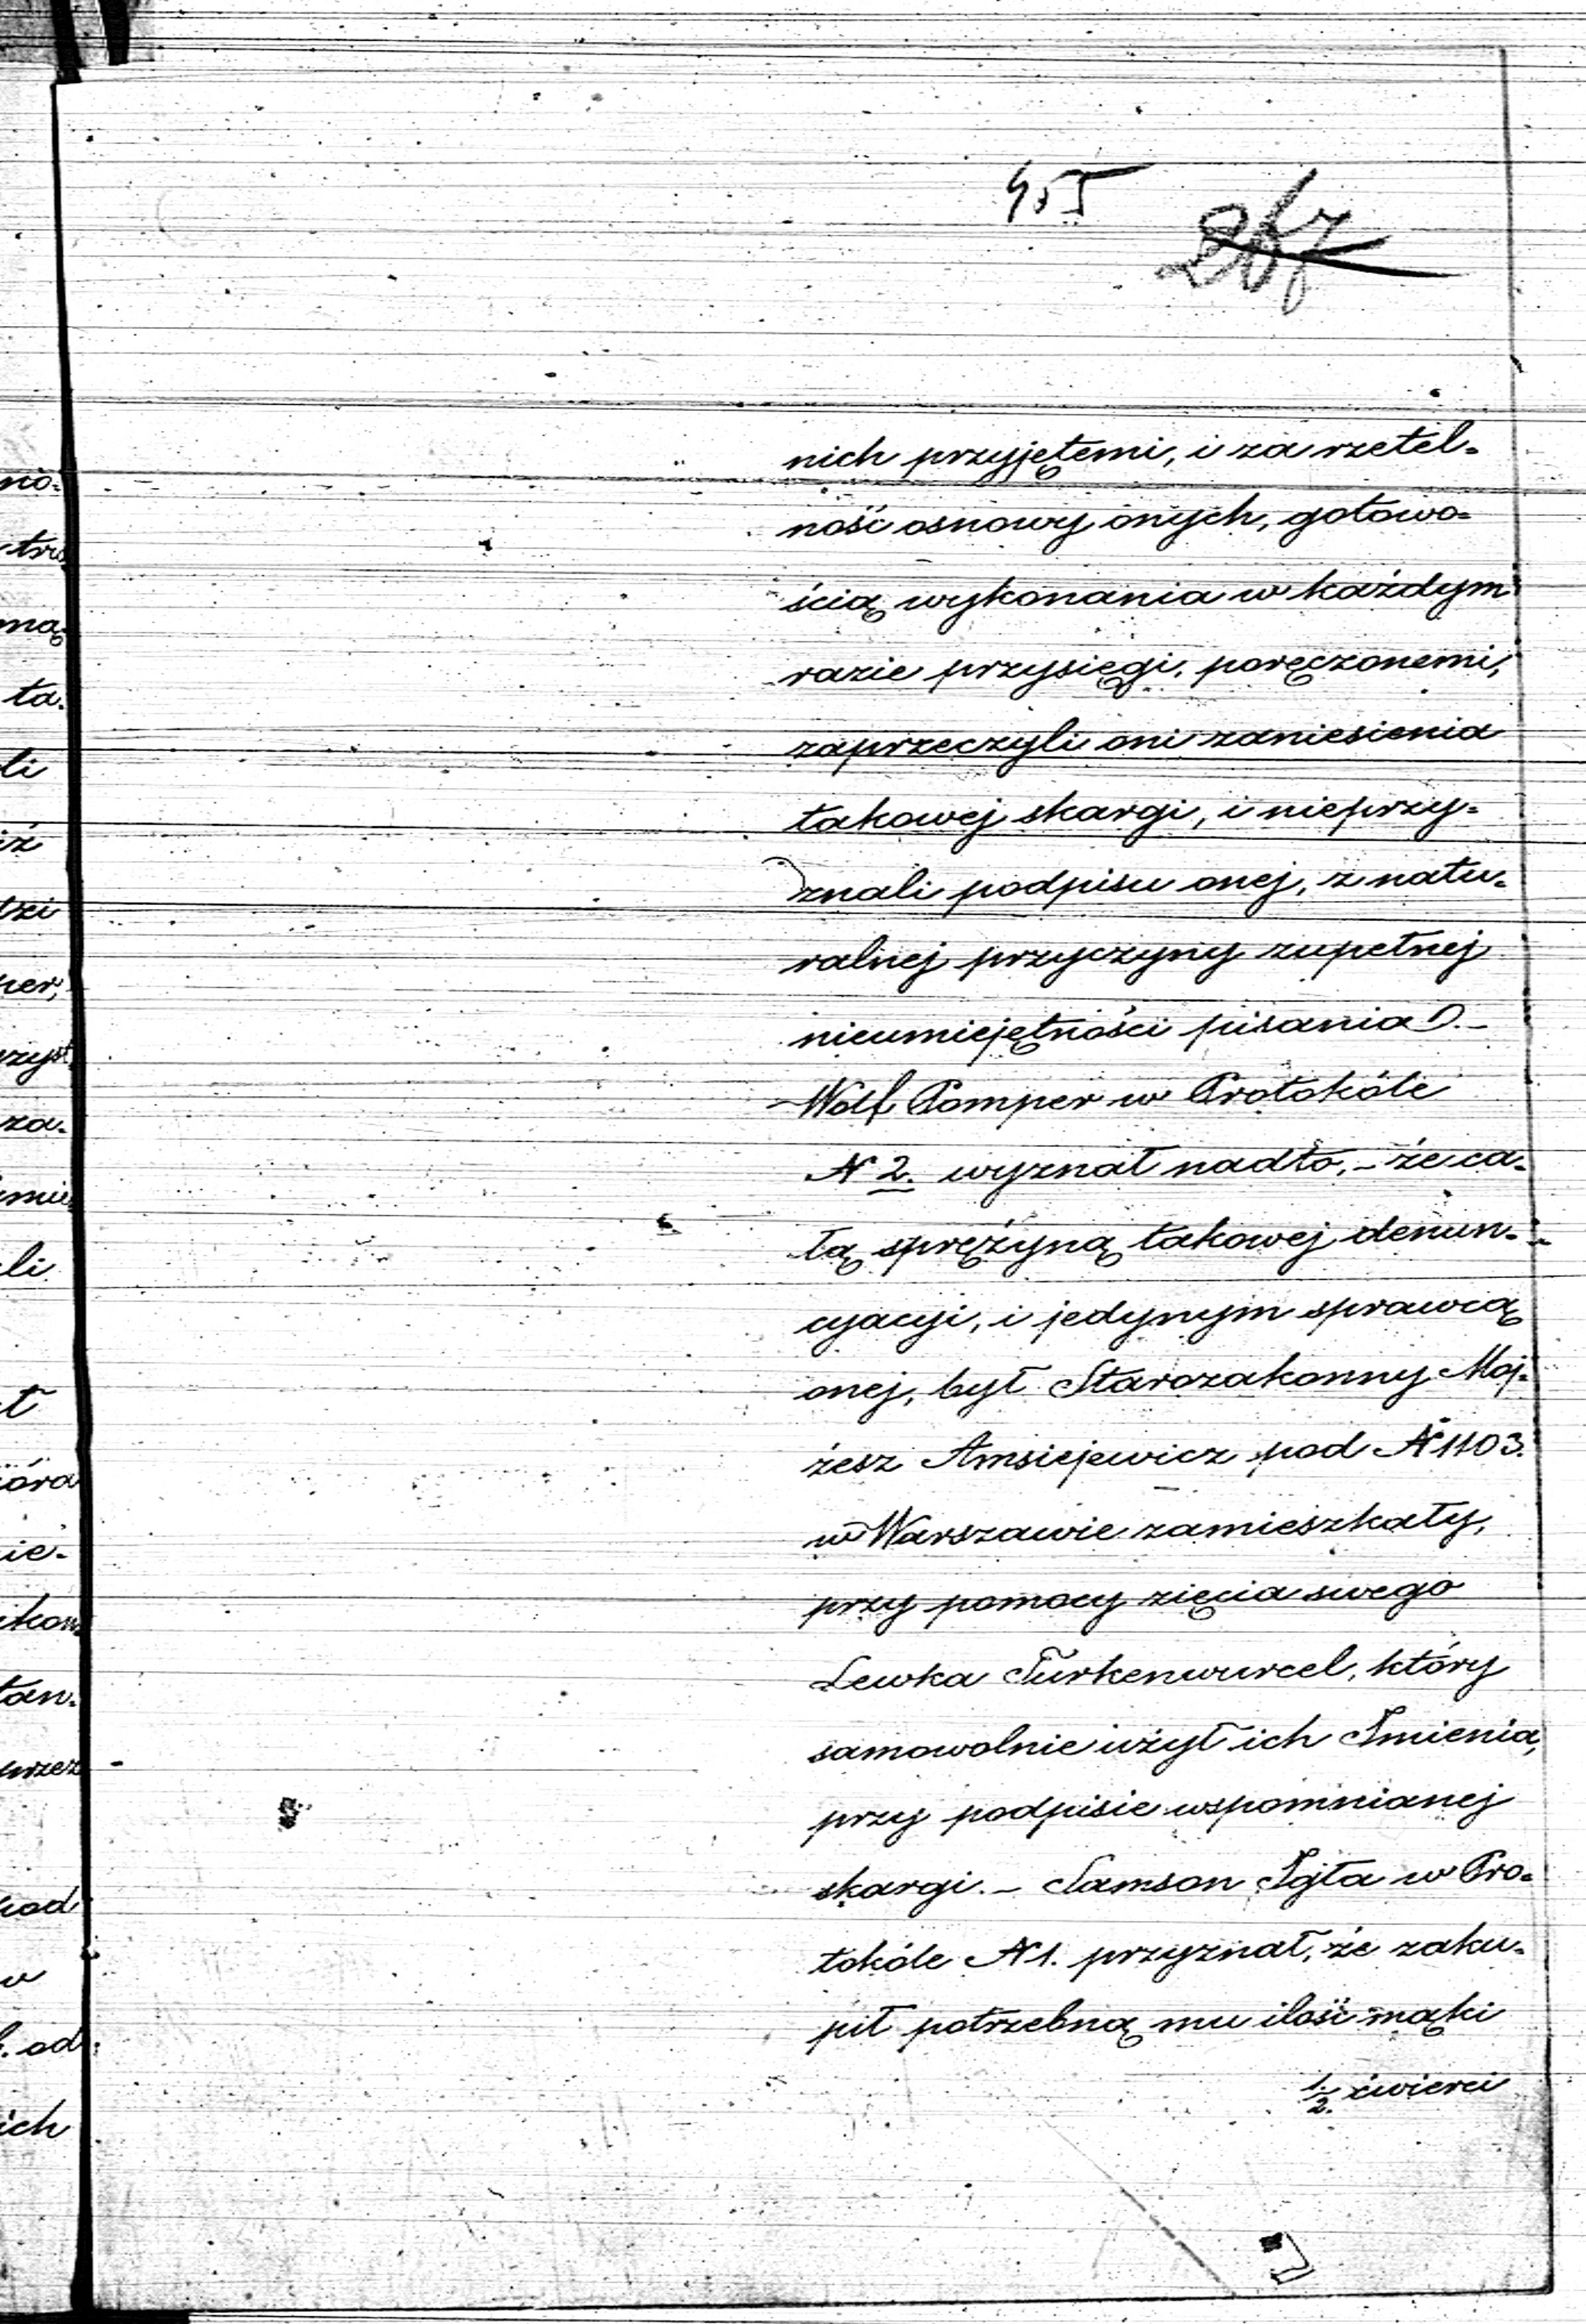 455
267
nich przyjętemi, i za rzetel=
ność osnowy onych, gotowo=
ścią wykonania w każdym
razie przysięgi, poręczonemi,
zaprzeczyli oni zaniesienia
takowej skargi, i nieprzy=
znali podpisu onej, z natu=
ralnej przyczyny zupełnej
nieumiejętności pisania.–
Wolf Pomper w Protokóle
N 2. wyznał nadto, – że ca=
łą sprężyną takowej denun=
cyacyi, i jedynym sprawcą
onej, był Starozakonny Moj=
żesz Amsiejewicz pod N 1103.
w Warszawie zamieszkały,
przy pomocy zięcia swego
Lewka Turkenwurcel, który
samowolnie użył ich Imienia,
przy podpisie wspomnianej
skargi. – Samson Igła w Pro=
tokóle N 1. przyznał, że zaku=
pił potrzebną mu ilość mąki
1/2. ćwierci